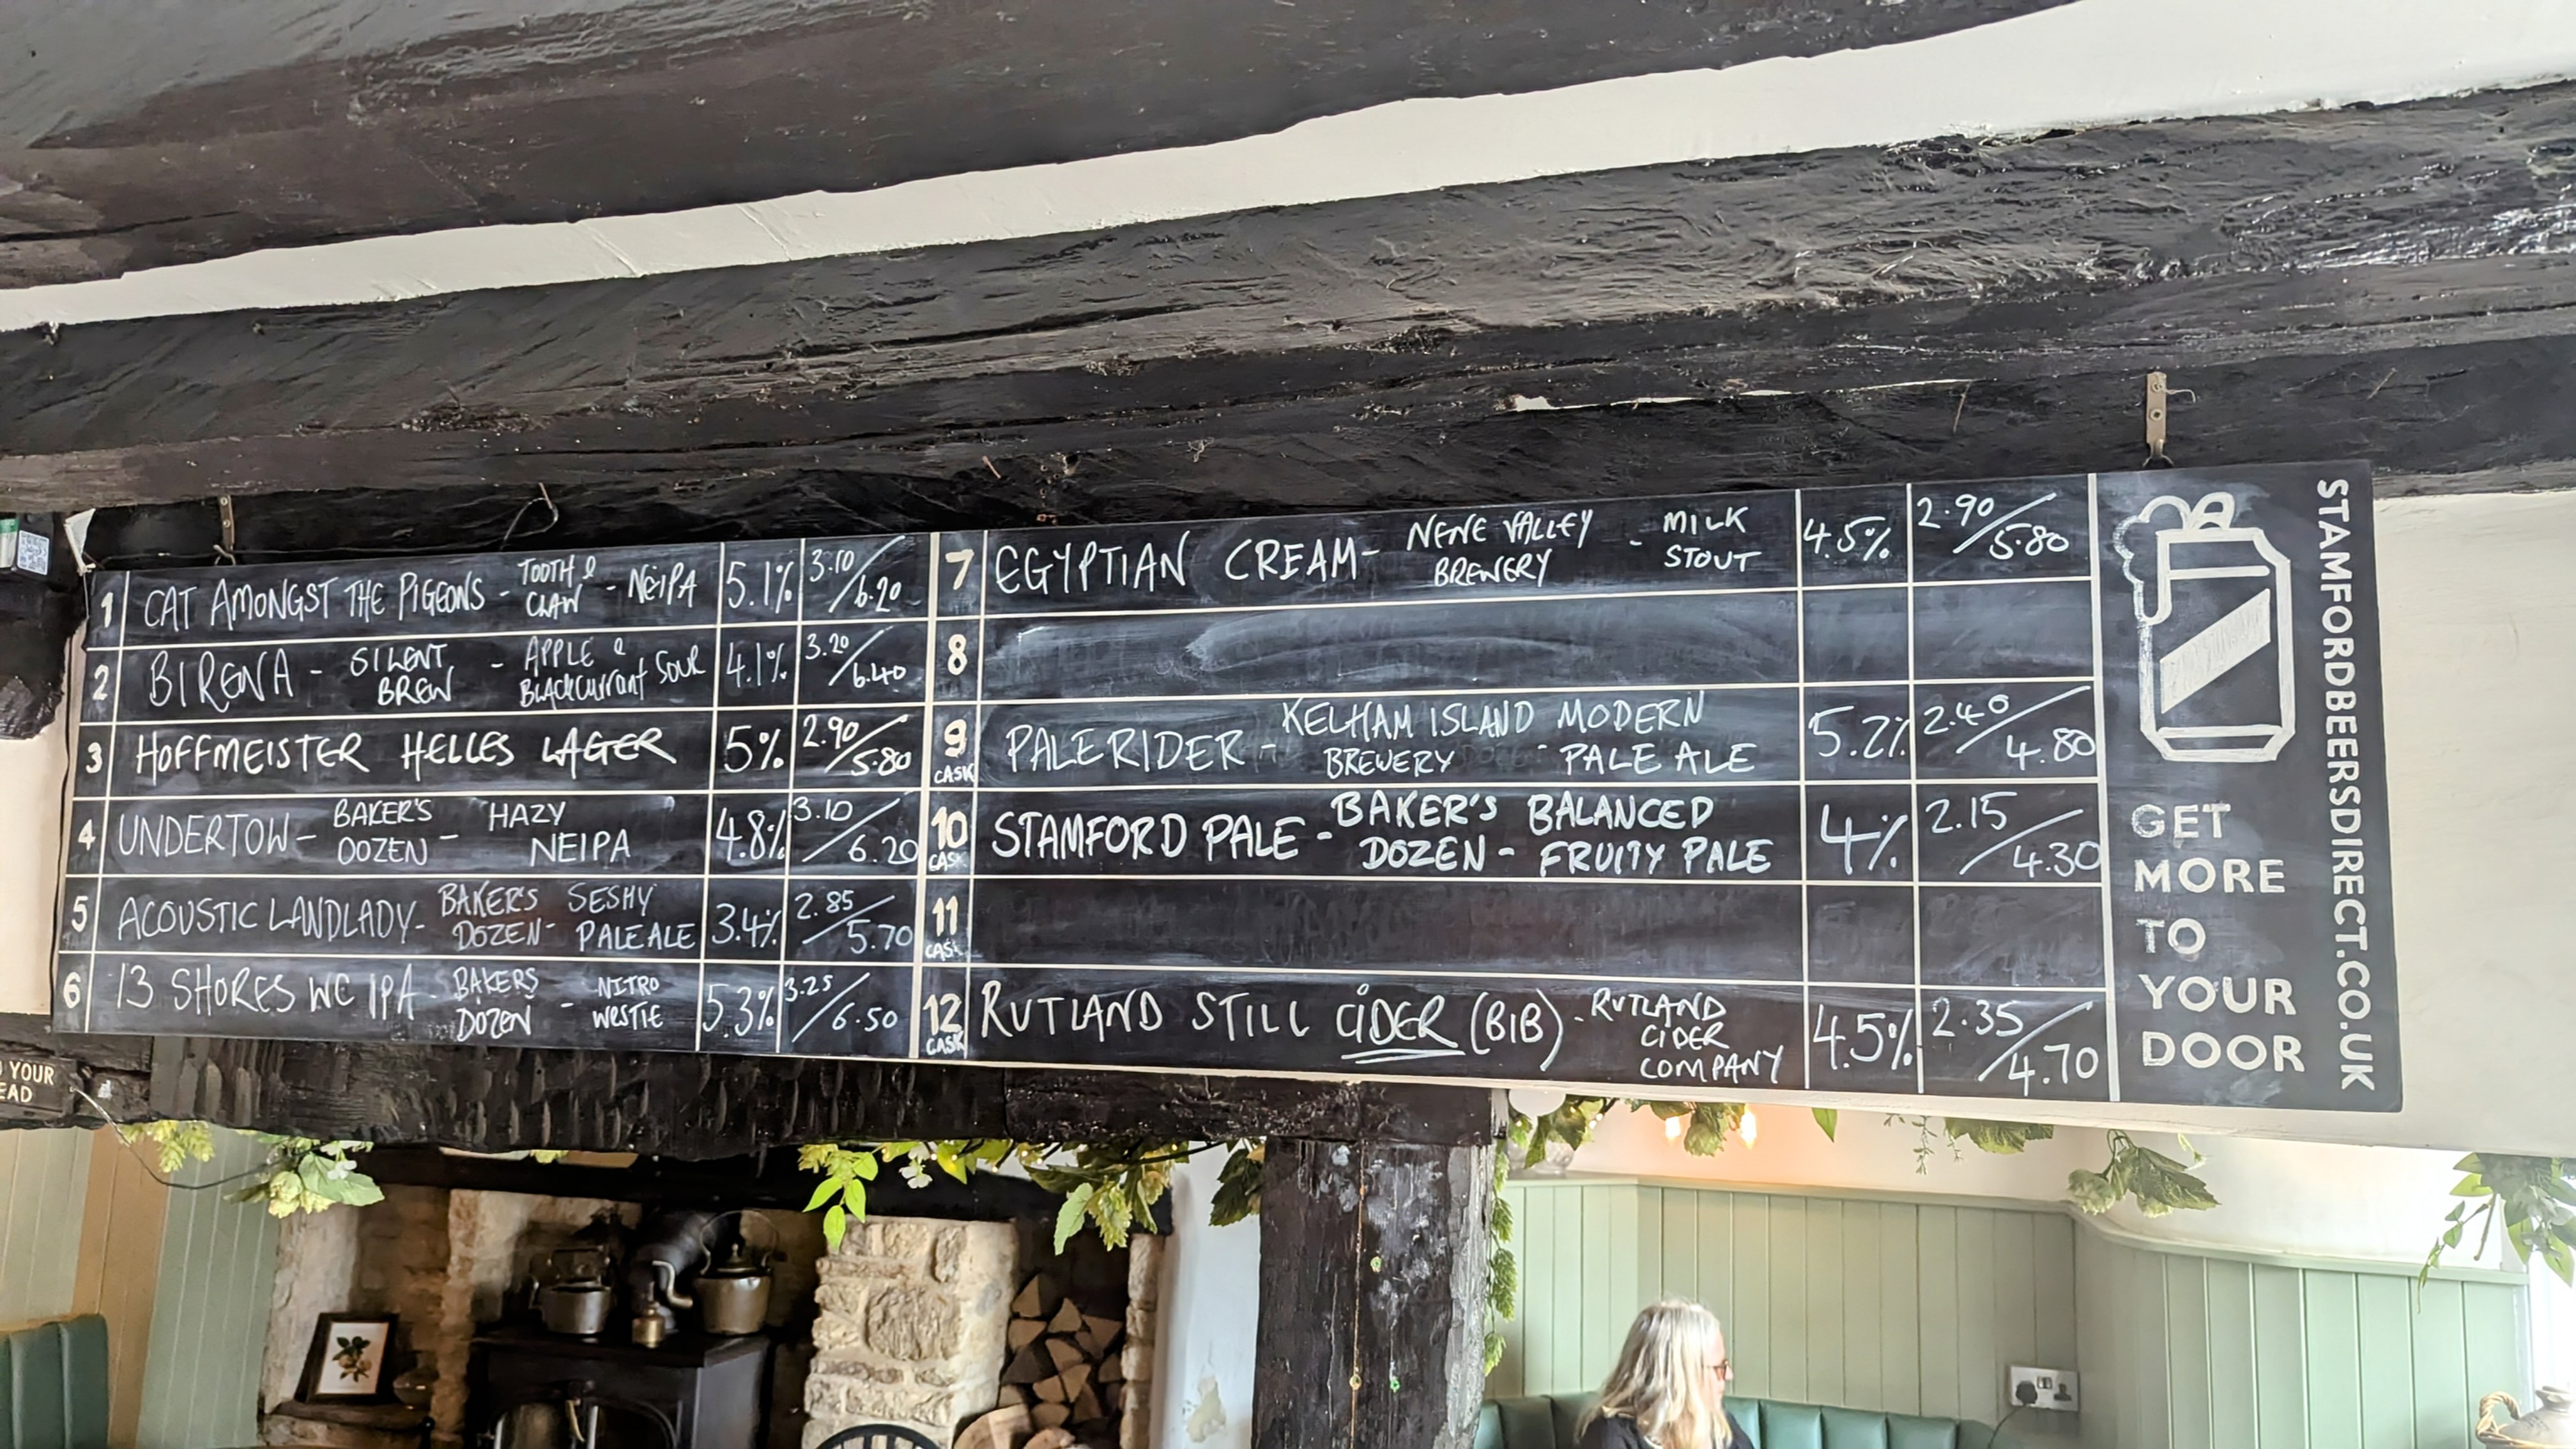 1 CAT AMONGST THE PIGEONS - TOOTH & CLAW - NEIPA 5.1% 3.10/6.20
2 BIRENA - SILENT BREW - APPLE & BLACKCURRANT SOUR 4.1% 3.20/6.40
3 HOFFMEISTER HELLES LAGER 5% 2.90/5.80
4 UNDERTOW - BAKER'S DOZEN - HAZY NEIPA 4.8% 3.10/6.20
5 ACOUSTIC LANDLADY - BAKER'S DOZEN - SESHY PALE ALE 3.4% 2.85/5.70
6 13 SHORES WC IPA - BAKERS DOZEN - NITRO WESTIE 5.3% 3.25/6.50
7 EGYPTIAN CREAM - NENE VALLEY BREWERY - MILK STOUT 4.5% 2.90/5.80
8
9 CASK PALE RIDER - KELHAM ISLAND BREWERY - MODERN PALE ALE 5.2% 2.40/4.80
10 CASK STAMFORD PALE - BAKER'S DOZEN - BALANCED FRUITY PALE 4% 2.15/4.30
11 CASK
12 CASK RUTLAND STILL CIDER (BIB) - RUTLAND CIDER COMPANY 4.5% 2.35/4.70
GET
MORE
TO
YOUR
DOOR
STAMFORDBEERSDIRECT.CO.UK
YOUR
EAD